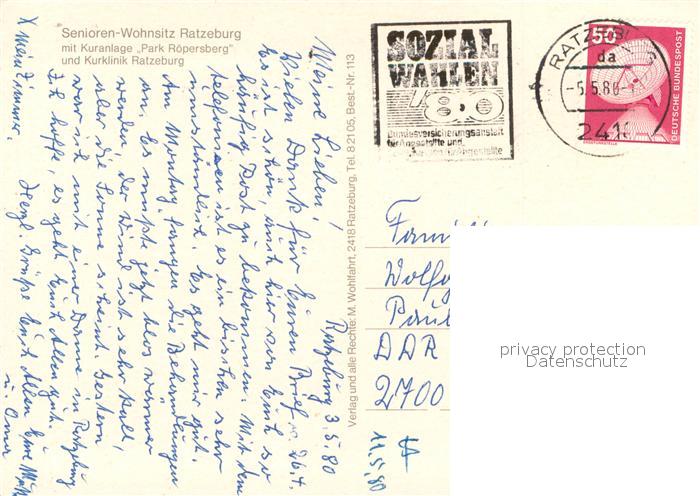 Senioren-Wohnsitz Ratzeburg
mit Kuranlage „Park Röpersberg"
und Kurklinik Ratzeburg
X mein Zimmer
Ratzeburg 3.5.80
Meine Lieben,
Vielen Dank für Euren Brief v. 26.4.
Es ist schön, auch hier von Euch so
häufig Post zu bekommen. Mit dem
telefonieren ist es ein bischen sehr
umständlich. Es geht mir gut.
Am Montag fangen die Behandlungen
an. Es müßte jetzt blos wärmer
werden, der Wind ist sehr kalt,
aber die Sonne scheint. Gestern
war ich mit einer Dame in Ratzeburg
Ich hoffe, es geht Euch Allen gut.
Herzl. Grüße Euch Allen Eure
u. Oma
Verlag und alle Rechte: M. Wohlfahrt, 2418 Ratzeburg, Tel. 82105, Best.-Nr. 113
SOZIAL
WAHLEN
'80
Bundesversicherungsanstalt
für Angestellte und
RATZEBURG
da
-5.5.80-
2418
50
DEUTSCHE BUNDESPOST
Familie
Wolfg
Paul
DDR
2700
11.5.80
privacy protection
Datenschutz